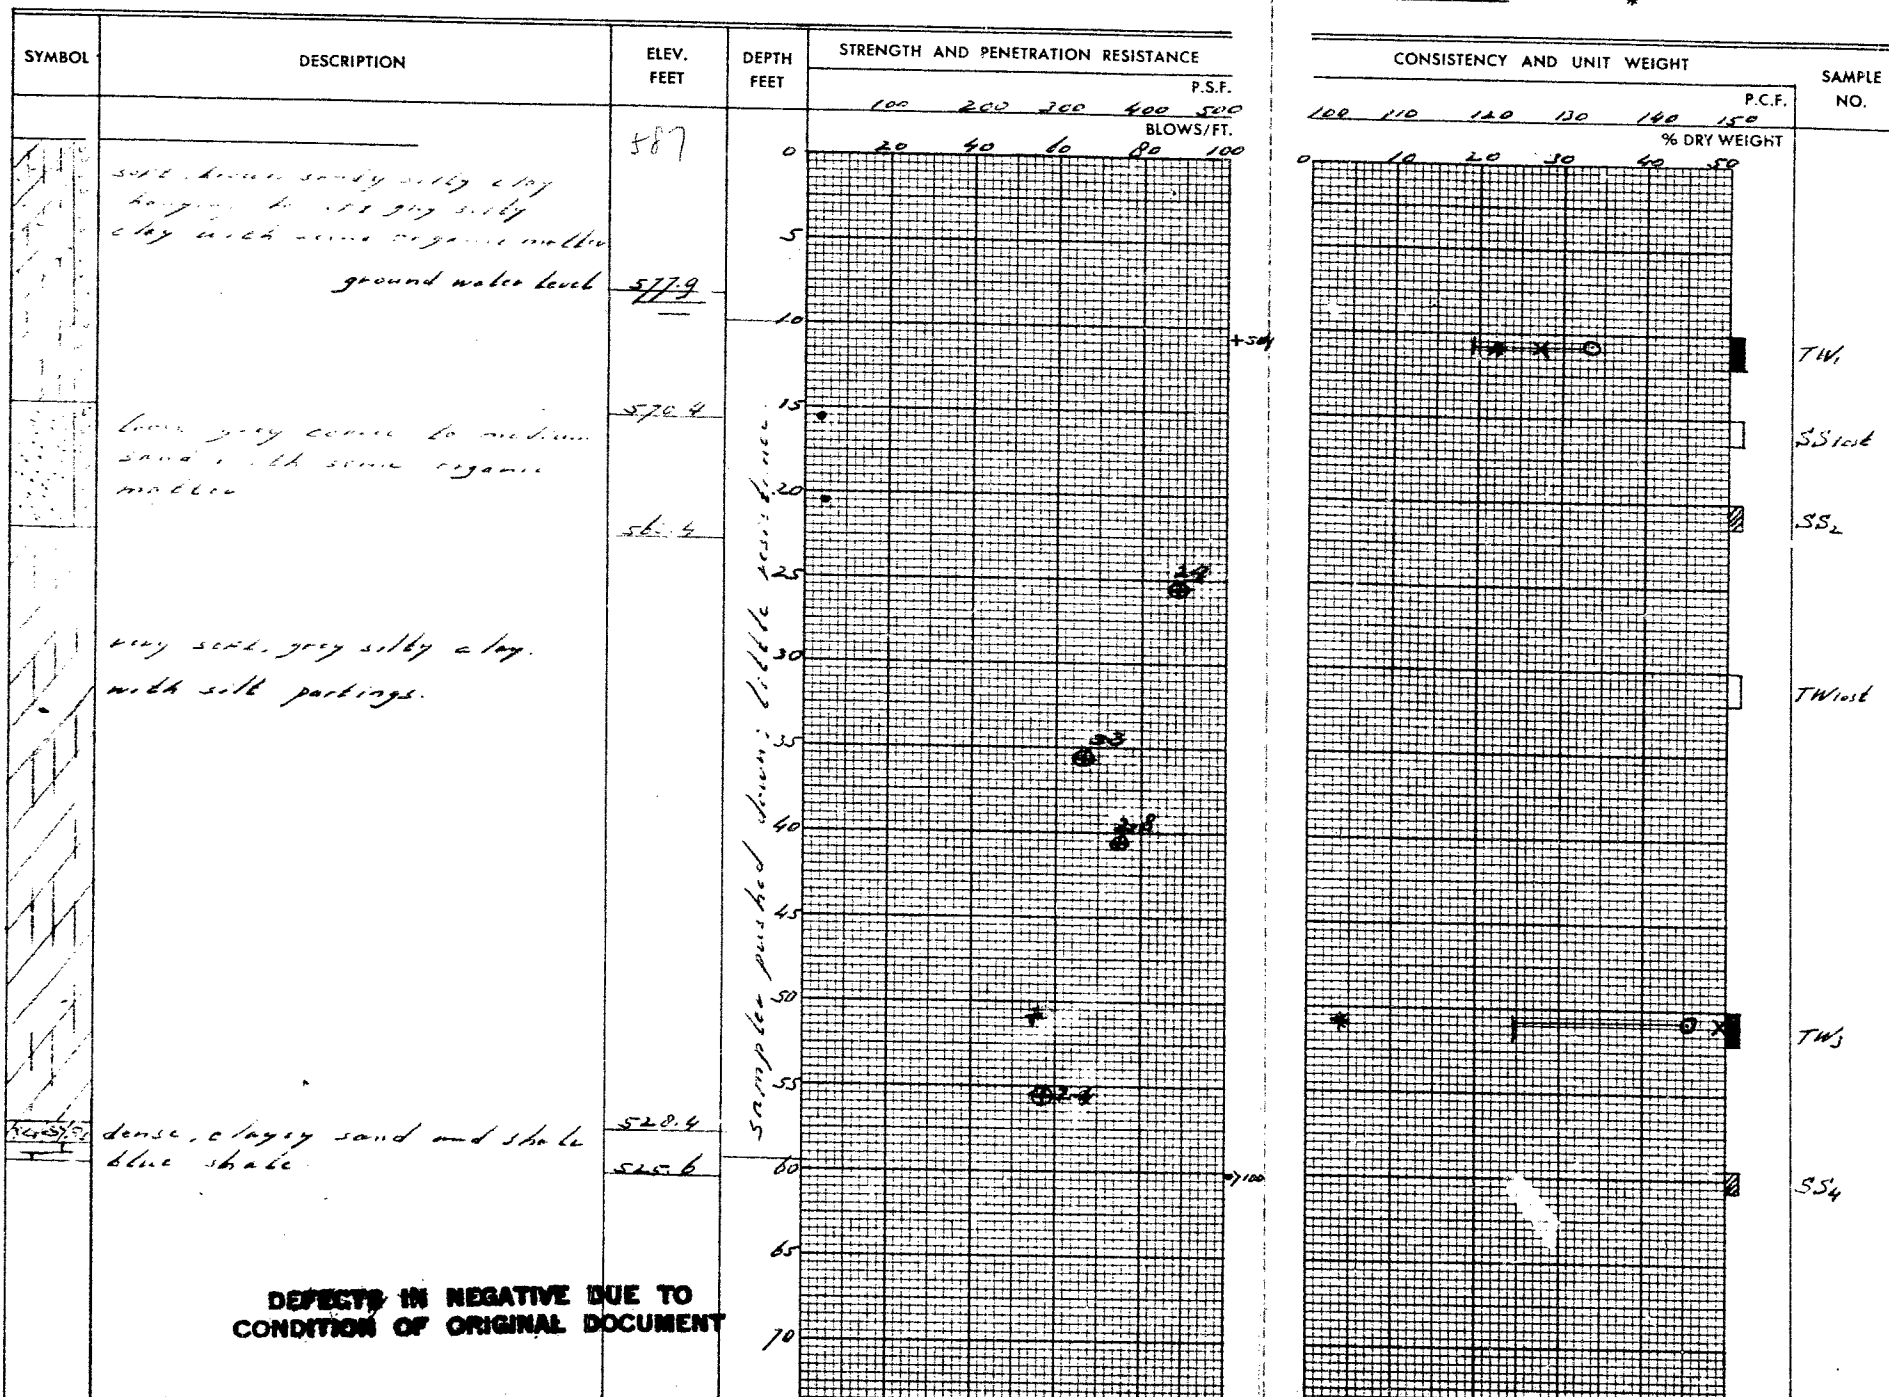 SYMBOL
DESCRIPTION
ELEV.
FEET
DEPTH
FEET
STRENGTH AND PENETRATION RESISTANCE
P.S.F.
100 200 300 400 500
BLOWS/FT.
0 20 40 60 80 100
CONSISTENCY AND UNIT WEIGHT
P.C.F.
100 110 120 130 140 150
% DRY WEIGHT
0 10 20 30 40 50
SAMPLE
NO.
587
soft brown sandy silty clay
to grey silty
clay with some organic matter
ground water level 577.9
570.4
loose grey coarse to medium
sand with some organic
matter
very soft, grey silty clay.
with silt partings.
dense, clayey sand and shale 528.4
blue shale 525.6
sampler pushed down; little resistance
5
10
15
20
25
30
35
40
45
50
55
60
65
70
2.4
3.3
2.8
2.4
>100
TW1
SS lost
SS2
TW lost
TW3
SS4
DEFECTS IN NEGATIVE DUE TO
CONDITION OF ORIGINAL DOCUMENT